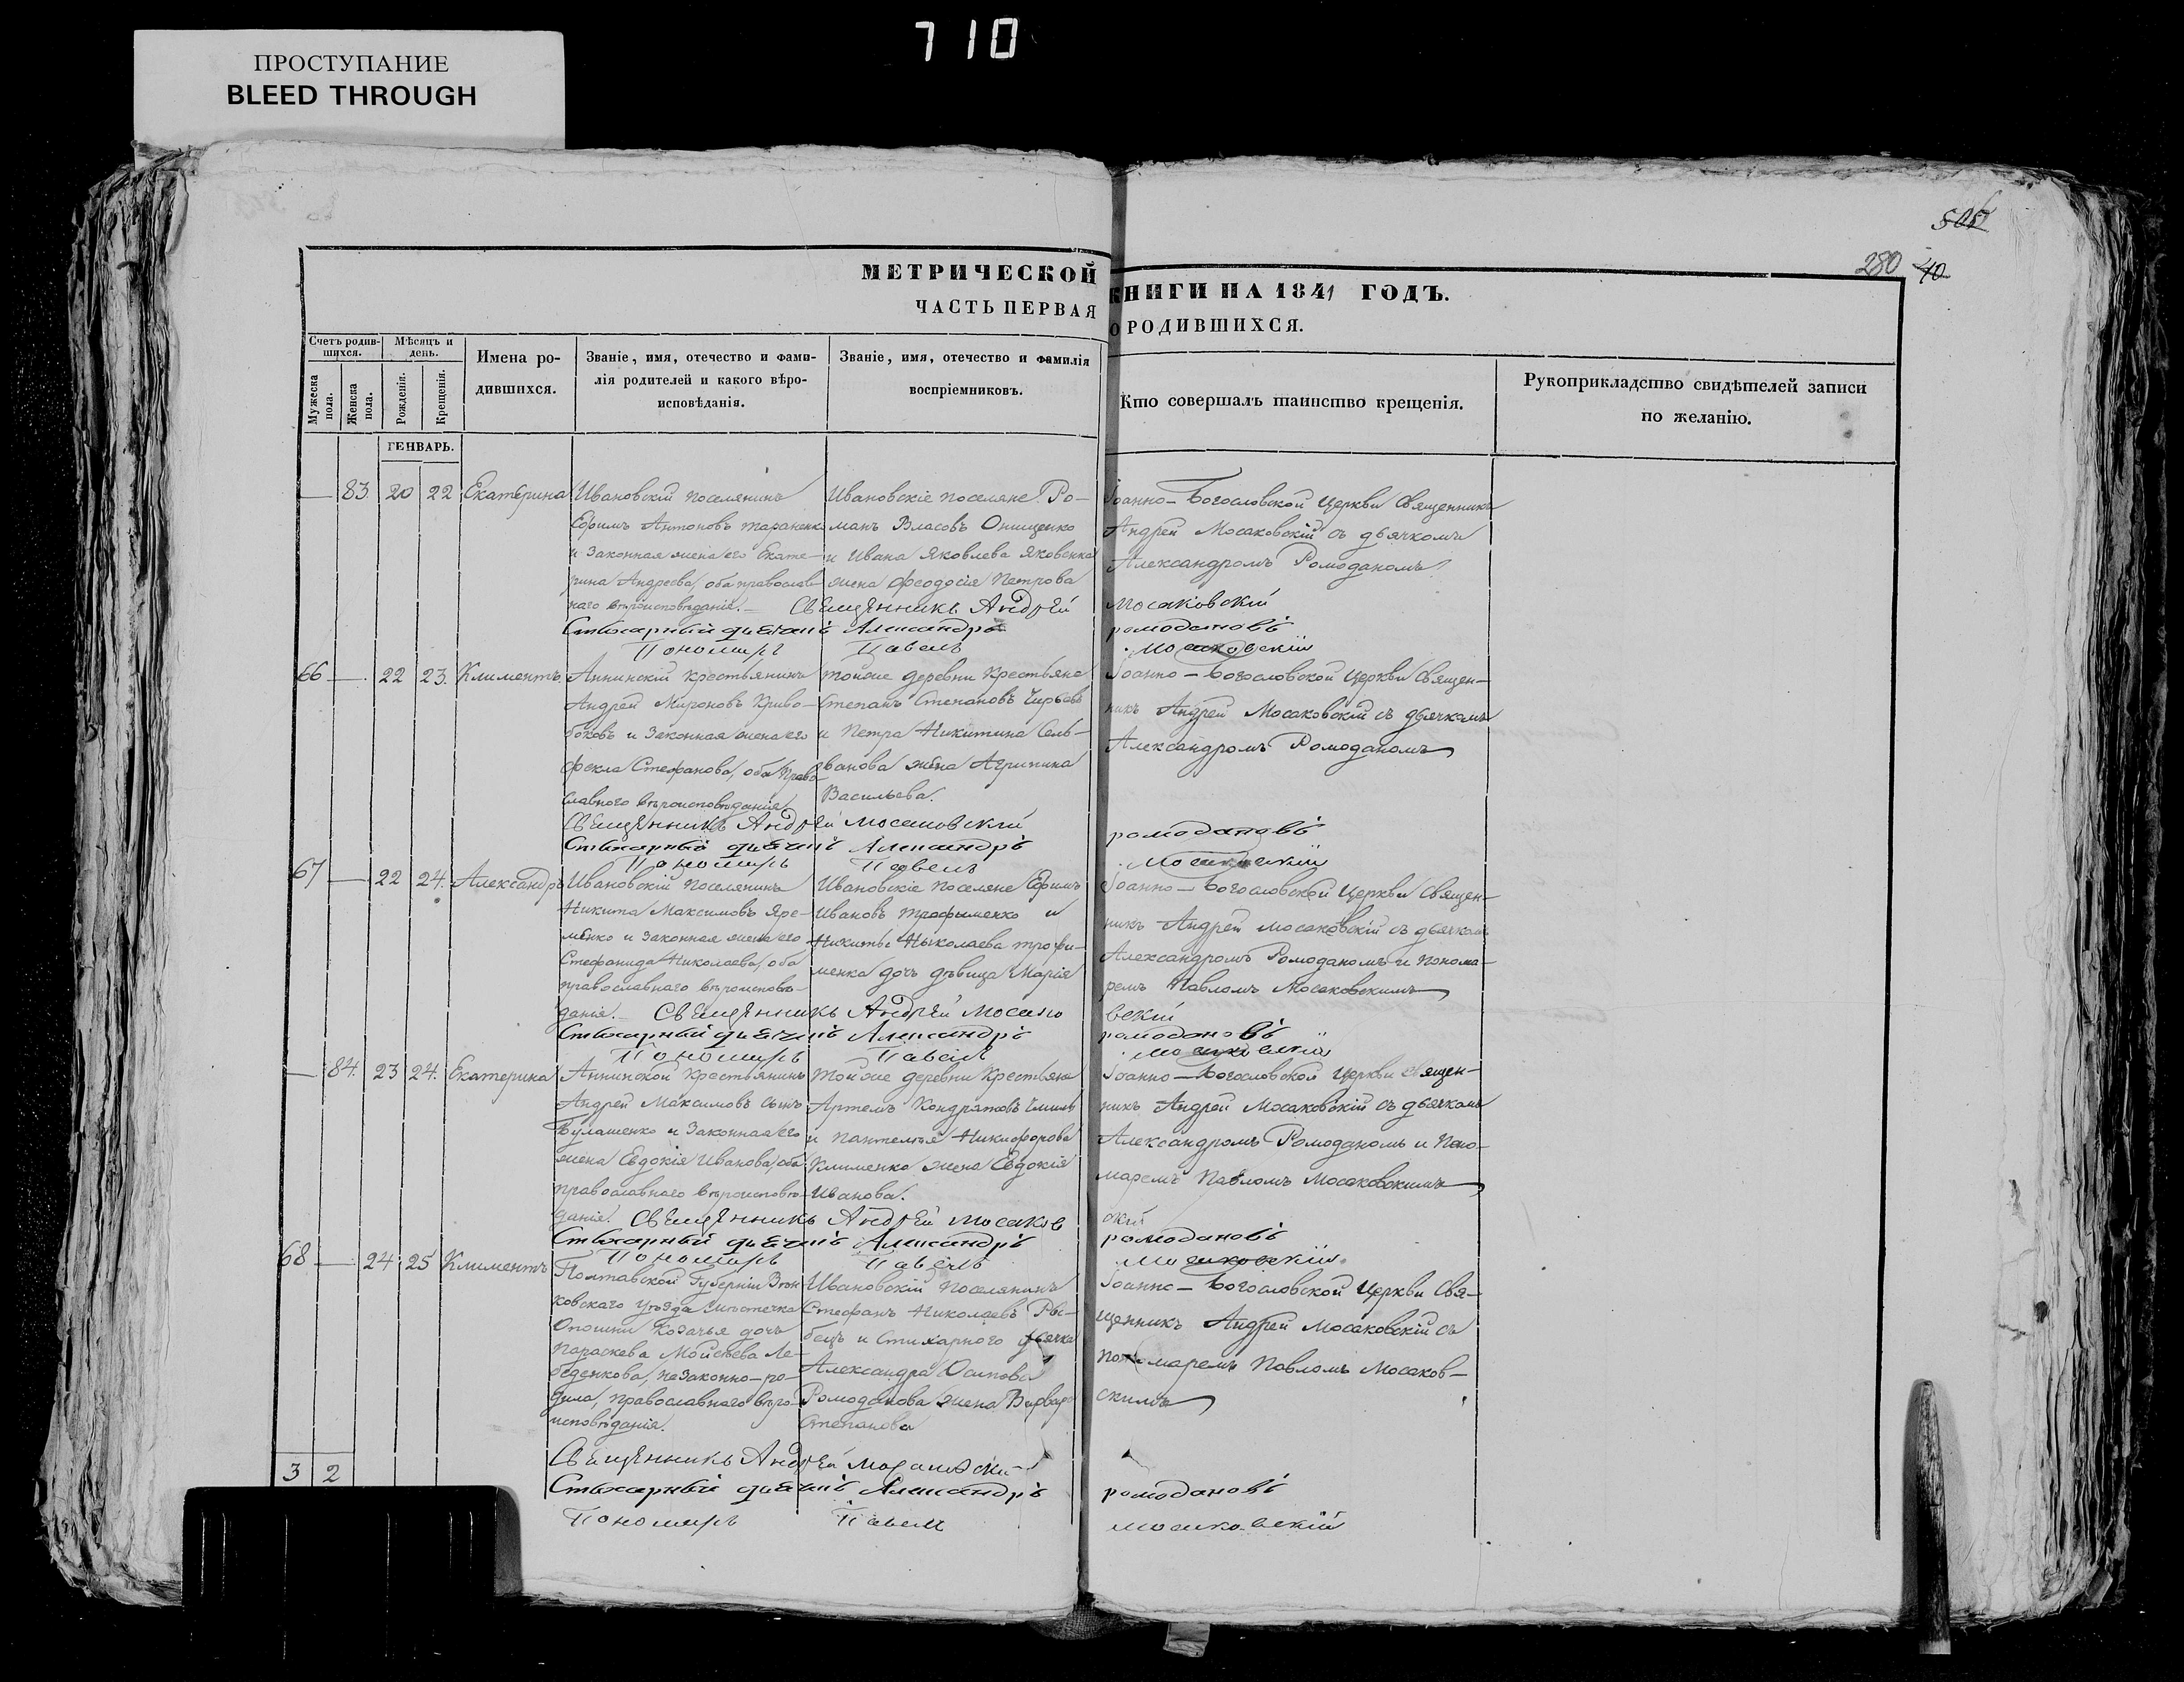 710
ПРОСТУПАНИЕ
BLEED THROUGH
280 40
МЕТРИЧЕСКОЙ КНИГИ НА 1841 ГОДЪ.
ЧАСТЬ ПЕРВАЯ О РОДИВШИХСЯ.
Счетъ родив-
шихся.
Мужеска пола.
Женска пола.
Мѣсяцъ и
день.
Рожденія.
Крещенія.
Имена ро-
дившихся.
Званіе, имя, отечество и фами-
лія родителей и какого вѣро-
исповѣданія.
Званіе, имя, отечество и фамилія
воспріемниковъ.
Кто совершалъ таинство крещенія.
Рукоприкладство свидѣтелей записи
по желанію.
ГЕНВАРЬ.
— 83. 20 22 Екатерина
Ивановскій поселянинъ
Ефимъ Антоновъ Тараненко
и законная жена его Екате-
рина Андреева, оба православ-
наго вѣроисповѣданія. —
Ивановскіе поселяне Ро-
манъ Власовъ Онищенко
и Ивана Яковлева Яковенка
жена Феодосія Петрова
Іоанно-Богословской Церкви Священникъ
Андрей Мосаковскій съ дьячкомъ
Александромъ Ромоданомъ
Священникъ Андрей Мосаковскій
Стихарный дьячикъ Александръ Ромодановъ
Пономарь Павелъ Мосаковскій
66 — 22 23. Климентъ
Аннинскій крестьянинъ
Андрей Мироновъ Криво-
боковъ и законная жена его
Фекла Стефанова, оба право
славного вѣроисповѣданія
тойже деревни крестьяне
Степанъ Степановъ
и Петра Никитина Сель-
ванова жена Агрипина
Васильева.
Іоанно-Богословской Церкви Священ-
никъ Андрей Мосаковскій съ дьячкомъ
Александромъ Ромоданомъ
Священникъ Андрей Мосаковскій
Стихарный дьячикъ Александръ Ромодановъ
Пономарь Павелъ Мосаковскій
67 — 22 24. Александръ
Ивановскій поселянинъ
Никита Максимовъ Яре-
менко и законная жена его
Стефанида Николаева, оба
православнаго вѣроисповѣ-
данія. —
Ивановскіе поселяне Ефимъ
Ивановъ Трофименко и
Никиты Николаева Трофи-
менка дочь дѣвица Марія
Іоанно-Богословской Церкви Священ-
никъ Андрей Мосаковскій съ дьячкомъ
Александромъ Ромоданомъ и Понома-
ремъ Павломъ Мосаковскимъ
Священникъ Андрей Мосаковскій
Стихарный дьячикъ Александръ Ромодановъ
Пономарь Павелъ Мосаковскій
— 84. 23 24. Екатерина
Аннинской крестьянинъ
Андрей Максимовъ сынъ
Булашенко и законная его
жена Евдокія Иванова, оба
православнаго вѣроисповѣ-
данія.
тойже деревни крестьяне
Артемъ Кондратовъ
и Пантелея Никифорова
Клименка жена Евдокія
Иванова.
Іоанно-Богословской Церкви Священ-
никъ Андрей Мосаковскій съ дьячкомъ
Александромъ Ромоданомъ и Поно-
маремъ Павломъ Мосаковскимъ
Священникъ Андрей Мосаковскій
Стихарный дьячикъ Александръ Ромодановъ
Пономарь Павелъ Мосаковскій
68 — 24 25 Климентъ
Полтавской Губерніи Зѣнь
ковскаго уѣзда мѣстечка
Опошни козачья дочь
Параскева Мойсеева Ле-
беденкова, незаконно-ро-
дила, православнаго вѣро-
исповѣданія.
Ивановскій поселянинъ
Стефанъ Николаевъ Ры-
бецъ и Стихарного дьячка
Александра Осипова
Ромоданова жена Варвара
Степанова
Іоанно-Богословской Церкви Свя-
щенникъ Андрей Мосаковскій съ
пономаремъ Павломъ Мосаков-
скимъ
Священникъ Андрей Мосаковскій
Стихарный дьячикъ Александръ Ромодановъ
Пономарь Павелъ Мосаковскій
3 2